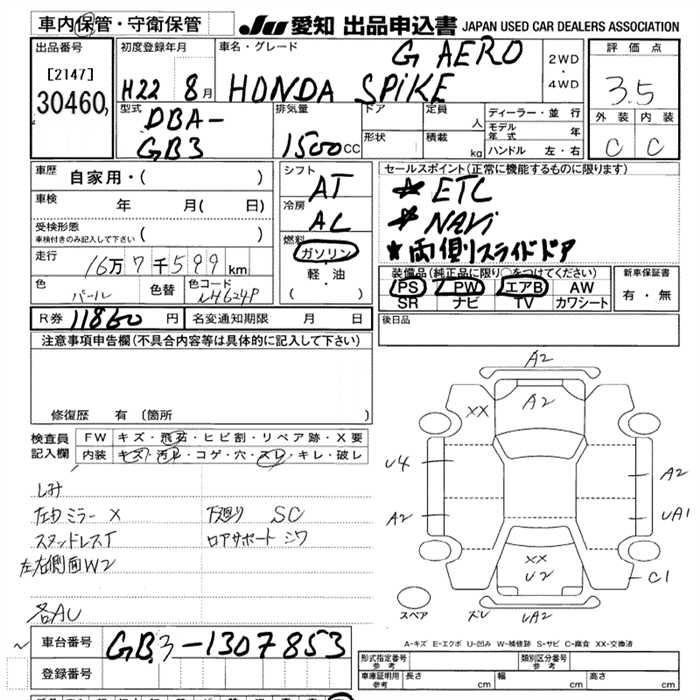 車内保管・守衛保管
JU 愛知 出品申込書 JAPAN USED CAR DEALERS ASSOCIATION
出品番号
[2147]
30460
初度登録年月
H22 8月
車名・グレード
G AERO
HONDA SPiKE
2WD
・
4WD
評価点
3.5
外装 内装
C C
型式
DBA-
GB3
排気量
1500cc
ドア
形状
定員 人
積載 kg
ディーラー・並行
モデル年式 年
ハンドル 左・右
車歴
自家用・( )
車検 年 月( 日)
受検形態
車検付きのみ記入して下さい ( )
走行
16万7千599km
色
パール
色替
色コード
NH624P
シフト
AT
冷房
AC
燃料
ガソリン
軽・油
( ・ )
セールスポイント(正常に機能するものに限ります)
★ETC
★NAVi
★両側スライドドア
装備品(純正品に限り○をつけてください)
PS PW エアB AW
SR ナビ TV カワシート
新車保証書
有・無
R券 11860円
名変通知期限 月 日
後日品
注意事項申告欄(不具合内容等は具体的に記入して下さい)
修復歴 有〔箇所 〕
検査員
記入欄
FW キズ・飛石・ヒビ割・リペア跡・X要
内装 キズ・汚レ・コゲ・穴・スレ・キレ・破レ
しみ
左右ミラーX 下廻り SC
スタッドレスT ロアサポート シワ
左右側面W2
各AU
A2
XX
A2
U4
A2
A2
UA1
XX
U2
C1
スペア
ズレ
UA2
A-キズ E-エクボ U-凹み W-補修跡 S-サビ C-腐食 XX-交換済
車台番号
GB3-1307853
登録番号
形式指定番号
参考
類別区分番号
参考
車庫証明用
参考
長さ cm 幅 cm 高さ cm